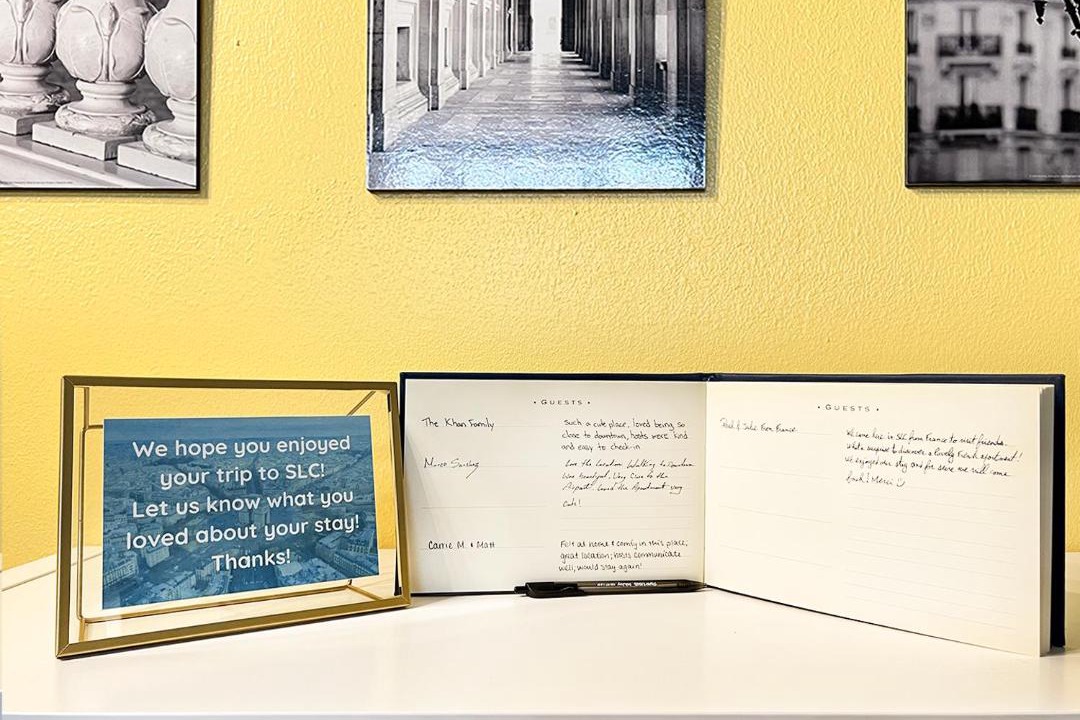 We hope you enjoyed
your trip to SLC!
Let us know what you
loved about your stay!
Thanks!
• GUESTS •
The Khan Family
Such a cute place, loved being so
close to downtown, hosts were kind
and easy to check-in
Love the location. Walking to Downtown
was tranquil. Very Close to the
Airport. Loved the Apartment very
cute!
Carrie M. & Matt
Felt at home & comfy in this place;
great location; hosts communicate
well; would stay again!
• GUESTS •
& Julie from France
We came here in SLC from France to visit friends.
What a surprise to discover a lovely French apartment!
We enjoyed our stay and for sure we will come
back! Merci